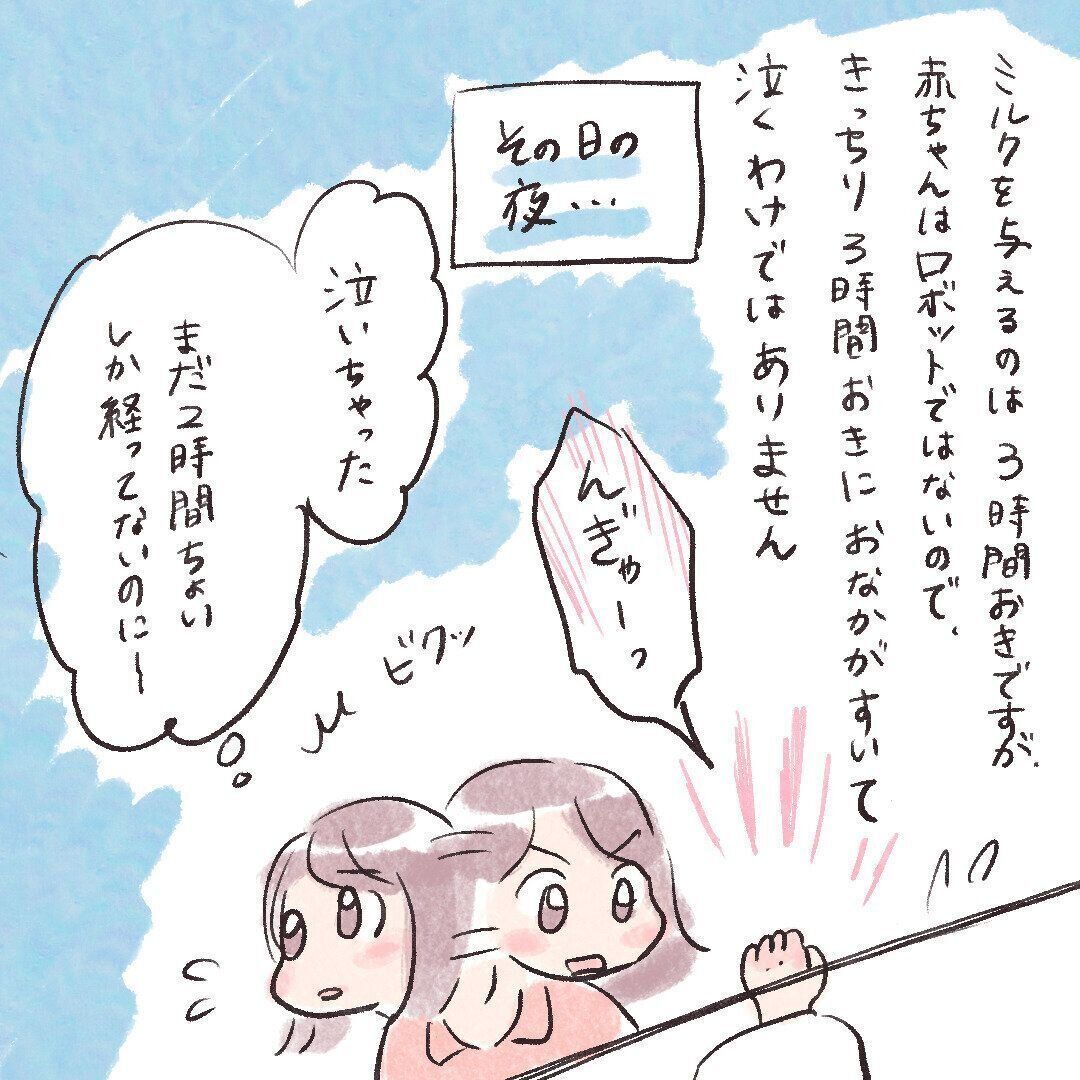 ミルクを与えるのは3時間おきですが、
赤ちゃんはロボットではないので、
きっちり3時間おきにおなかがすいて
泣くわけではありません
その日の
夜…
んぎゃーっ
ビクッ
泣いちゃった
まだ2時間ちょい
しか経ってないのにー